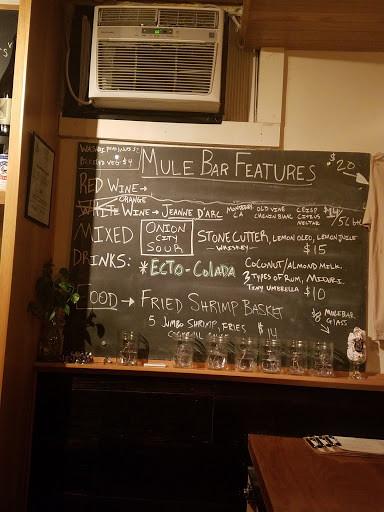 WASABI PEAS
PICKLED VEG $4
MULE BAR FEATURES
$20
RED WINE→
ORANGE
WHITE WINE→ JEANNE D'ARC MONTEREY CA OLD VINE CHENIN BLANC CRISP CITRUS NECTAR $14/56 btl
MIXED DRINKS:
ONION CITY SOUR
STONECUTTER, LEMON OLEO, LEMON JUICE
WHISKEY
$15
*ECTO-COLADA
COCONUT/ALMOND MILK.
3 TYPES OF RUM, MIDORI.
TINY UMBRELLA $10
FOOD → FRIED SHRIMP BASKET
5 JUMBO SHRIMP, FRIES $14
MULEBAR
GLASS